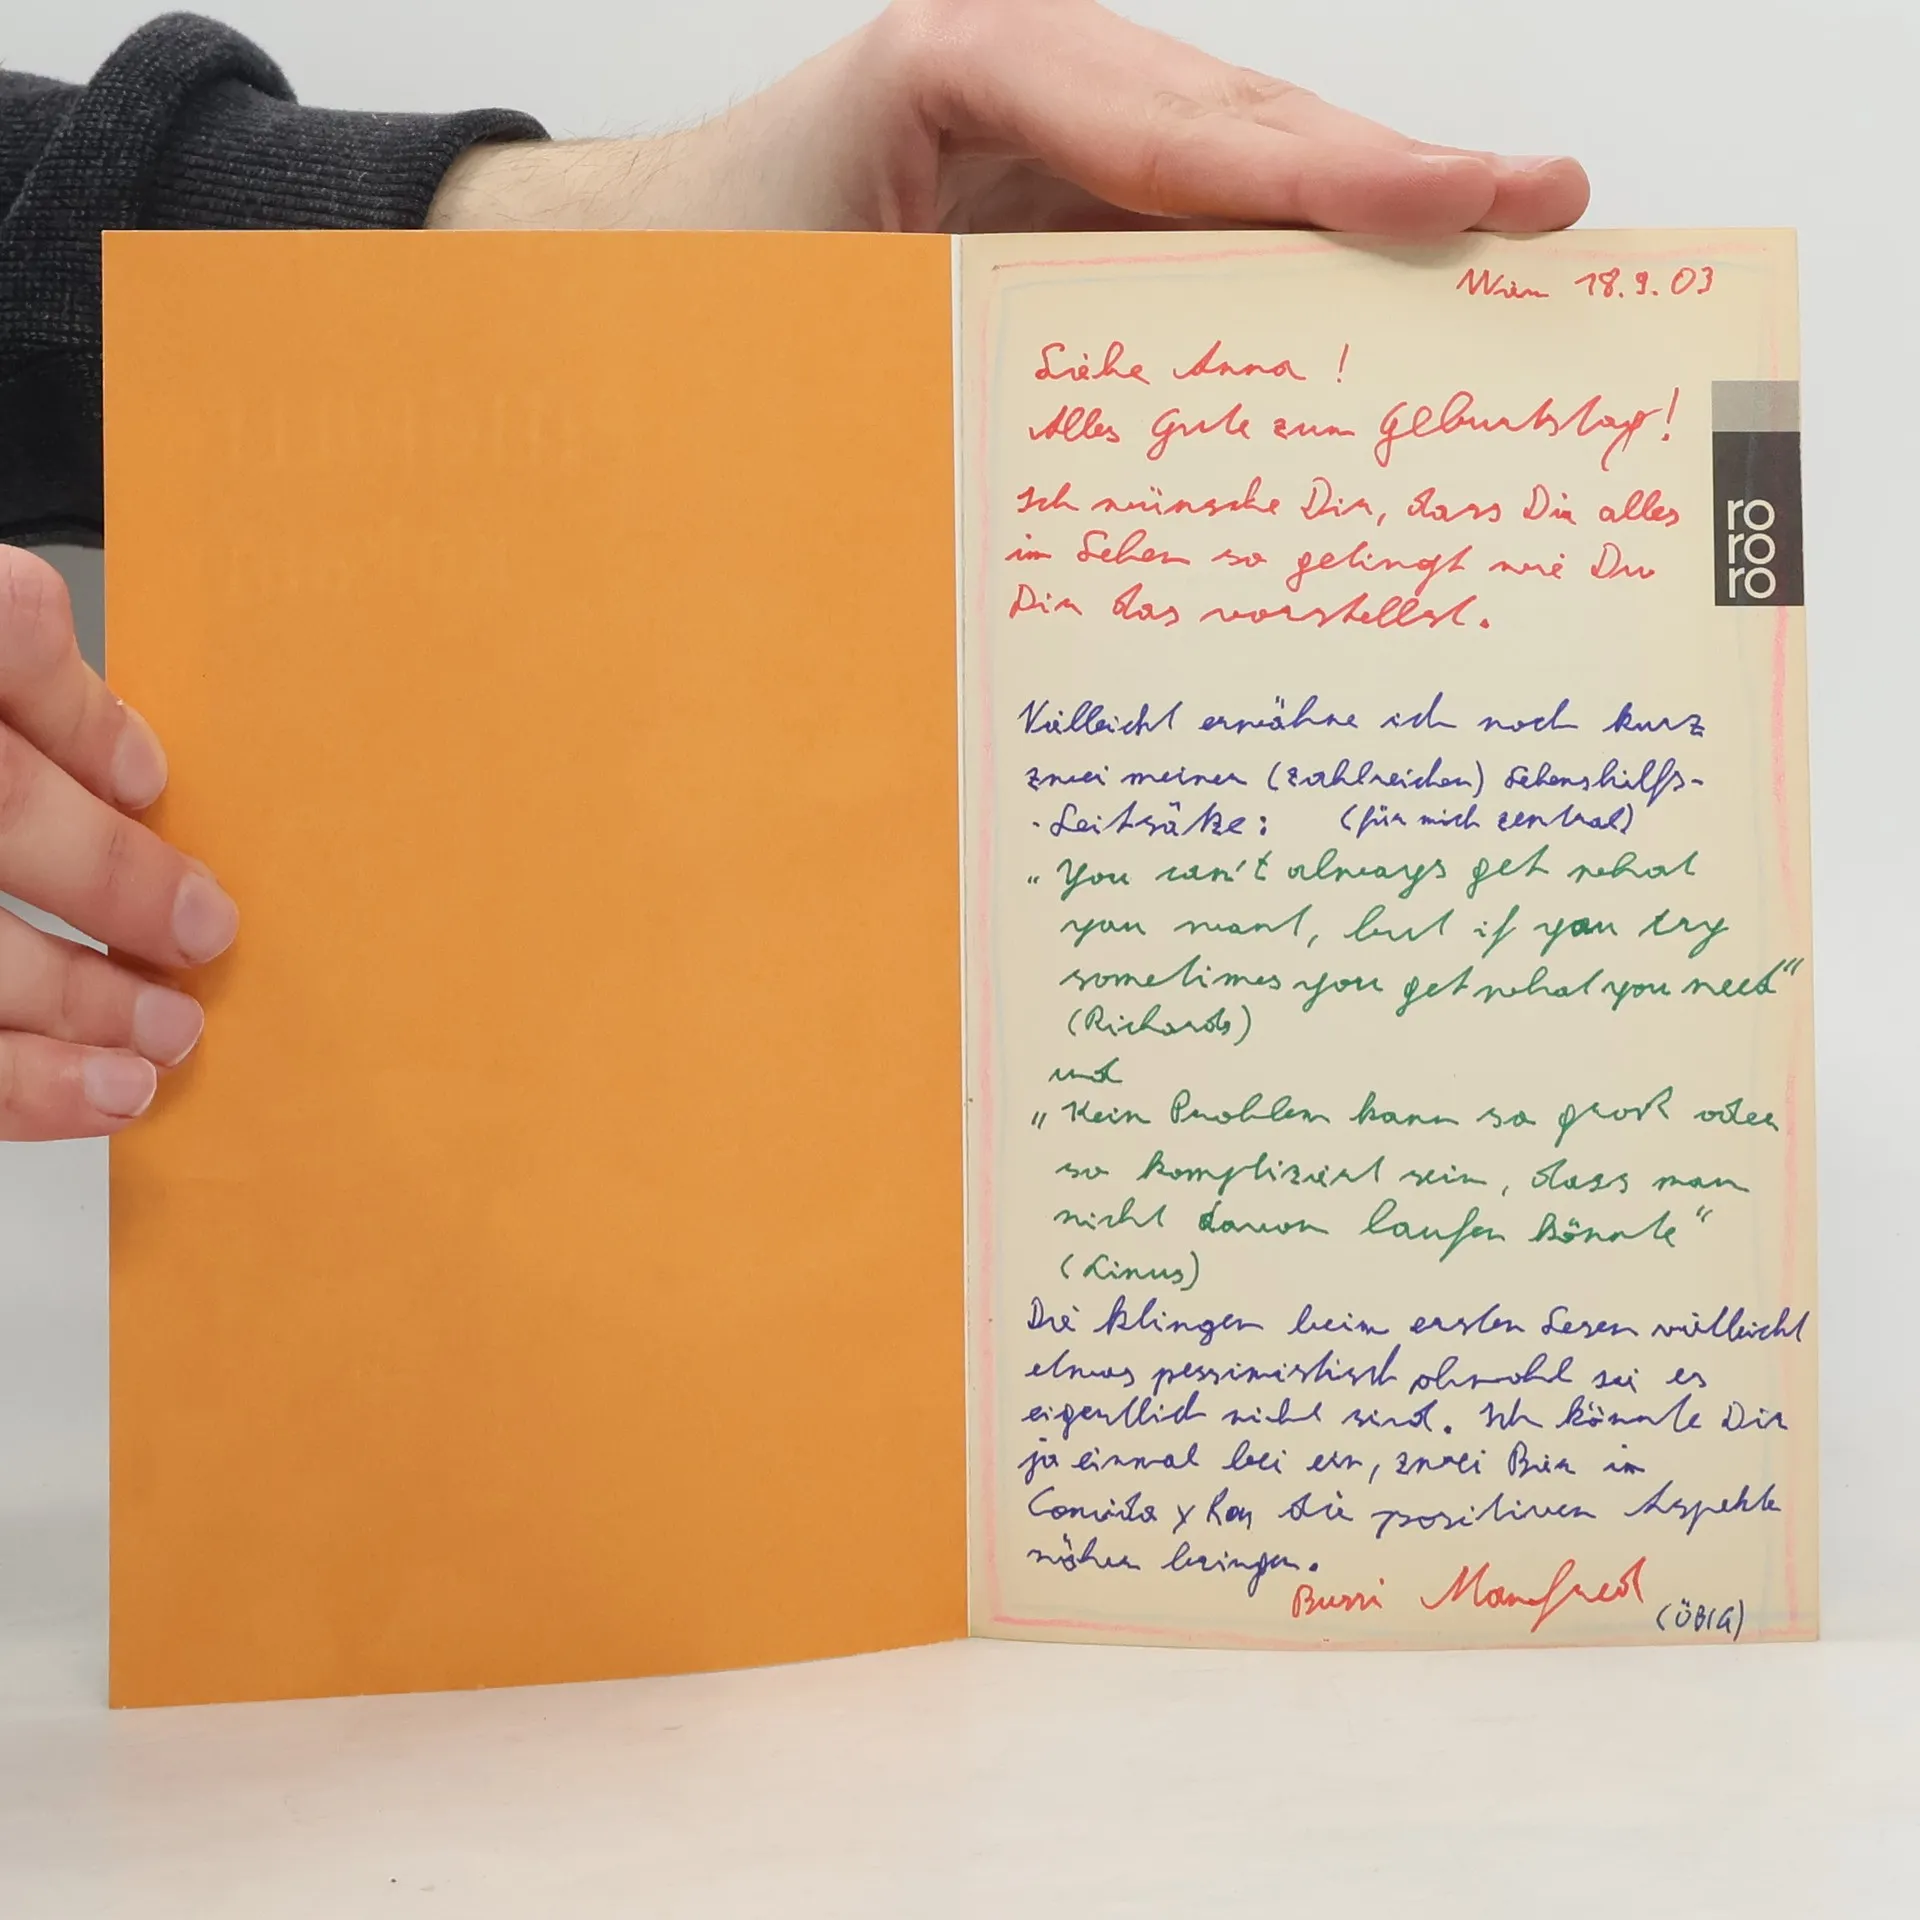 Wien 18.9.03
Liebe Anna!
Alles Gute zum Geburtstag!
Ich wünsche Dir, dass Dir alles
im Leben so gelingt wie Du
Dir das vorstellst.
ro
ro
ro
Vielleicht erwähne ich noch kurz
zwei meiner (zahlreichen) Lebenshilfs-
-Leitsätze: (für mich zentral)
„You can't always get what
you want, but if you try
sometimes you get what you need“
(Richards)
und
„Kein Problem kann so groß oder
so kompliziert sein, dass man
nicht davon laufen könnte“
(Linus)
Die klingen beim ersten Lesen vielleicht
etwas pessimistisch obwohl sie es
eigentlich nicht sind. Ich könnte Dir
ja einmal bei ein, zwei Bier im
Comida y Ron die positiven Aspekte
näher bringen.
Bussi Manfred
(ÖBIG)